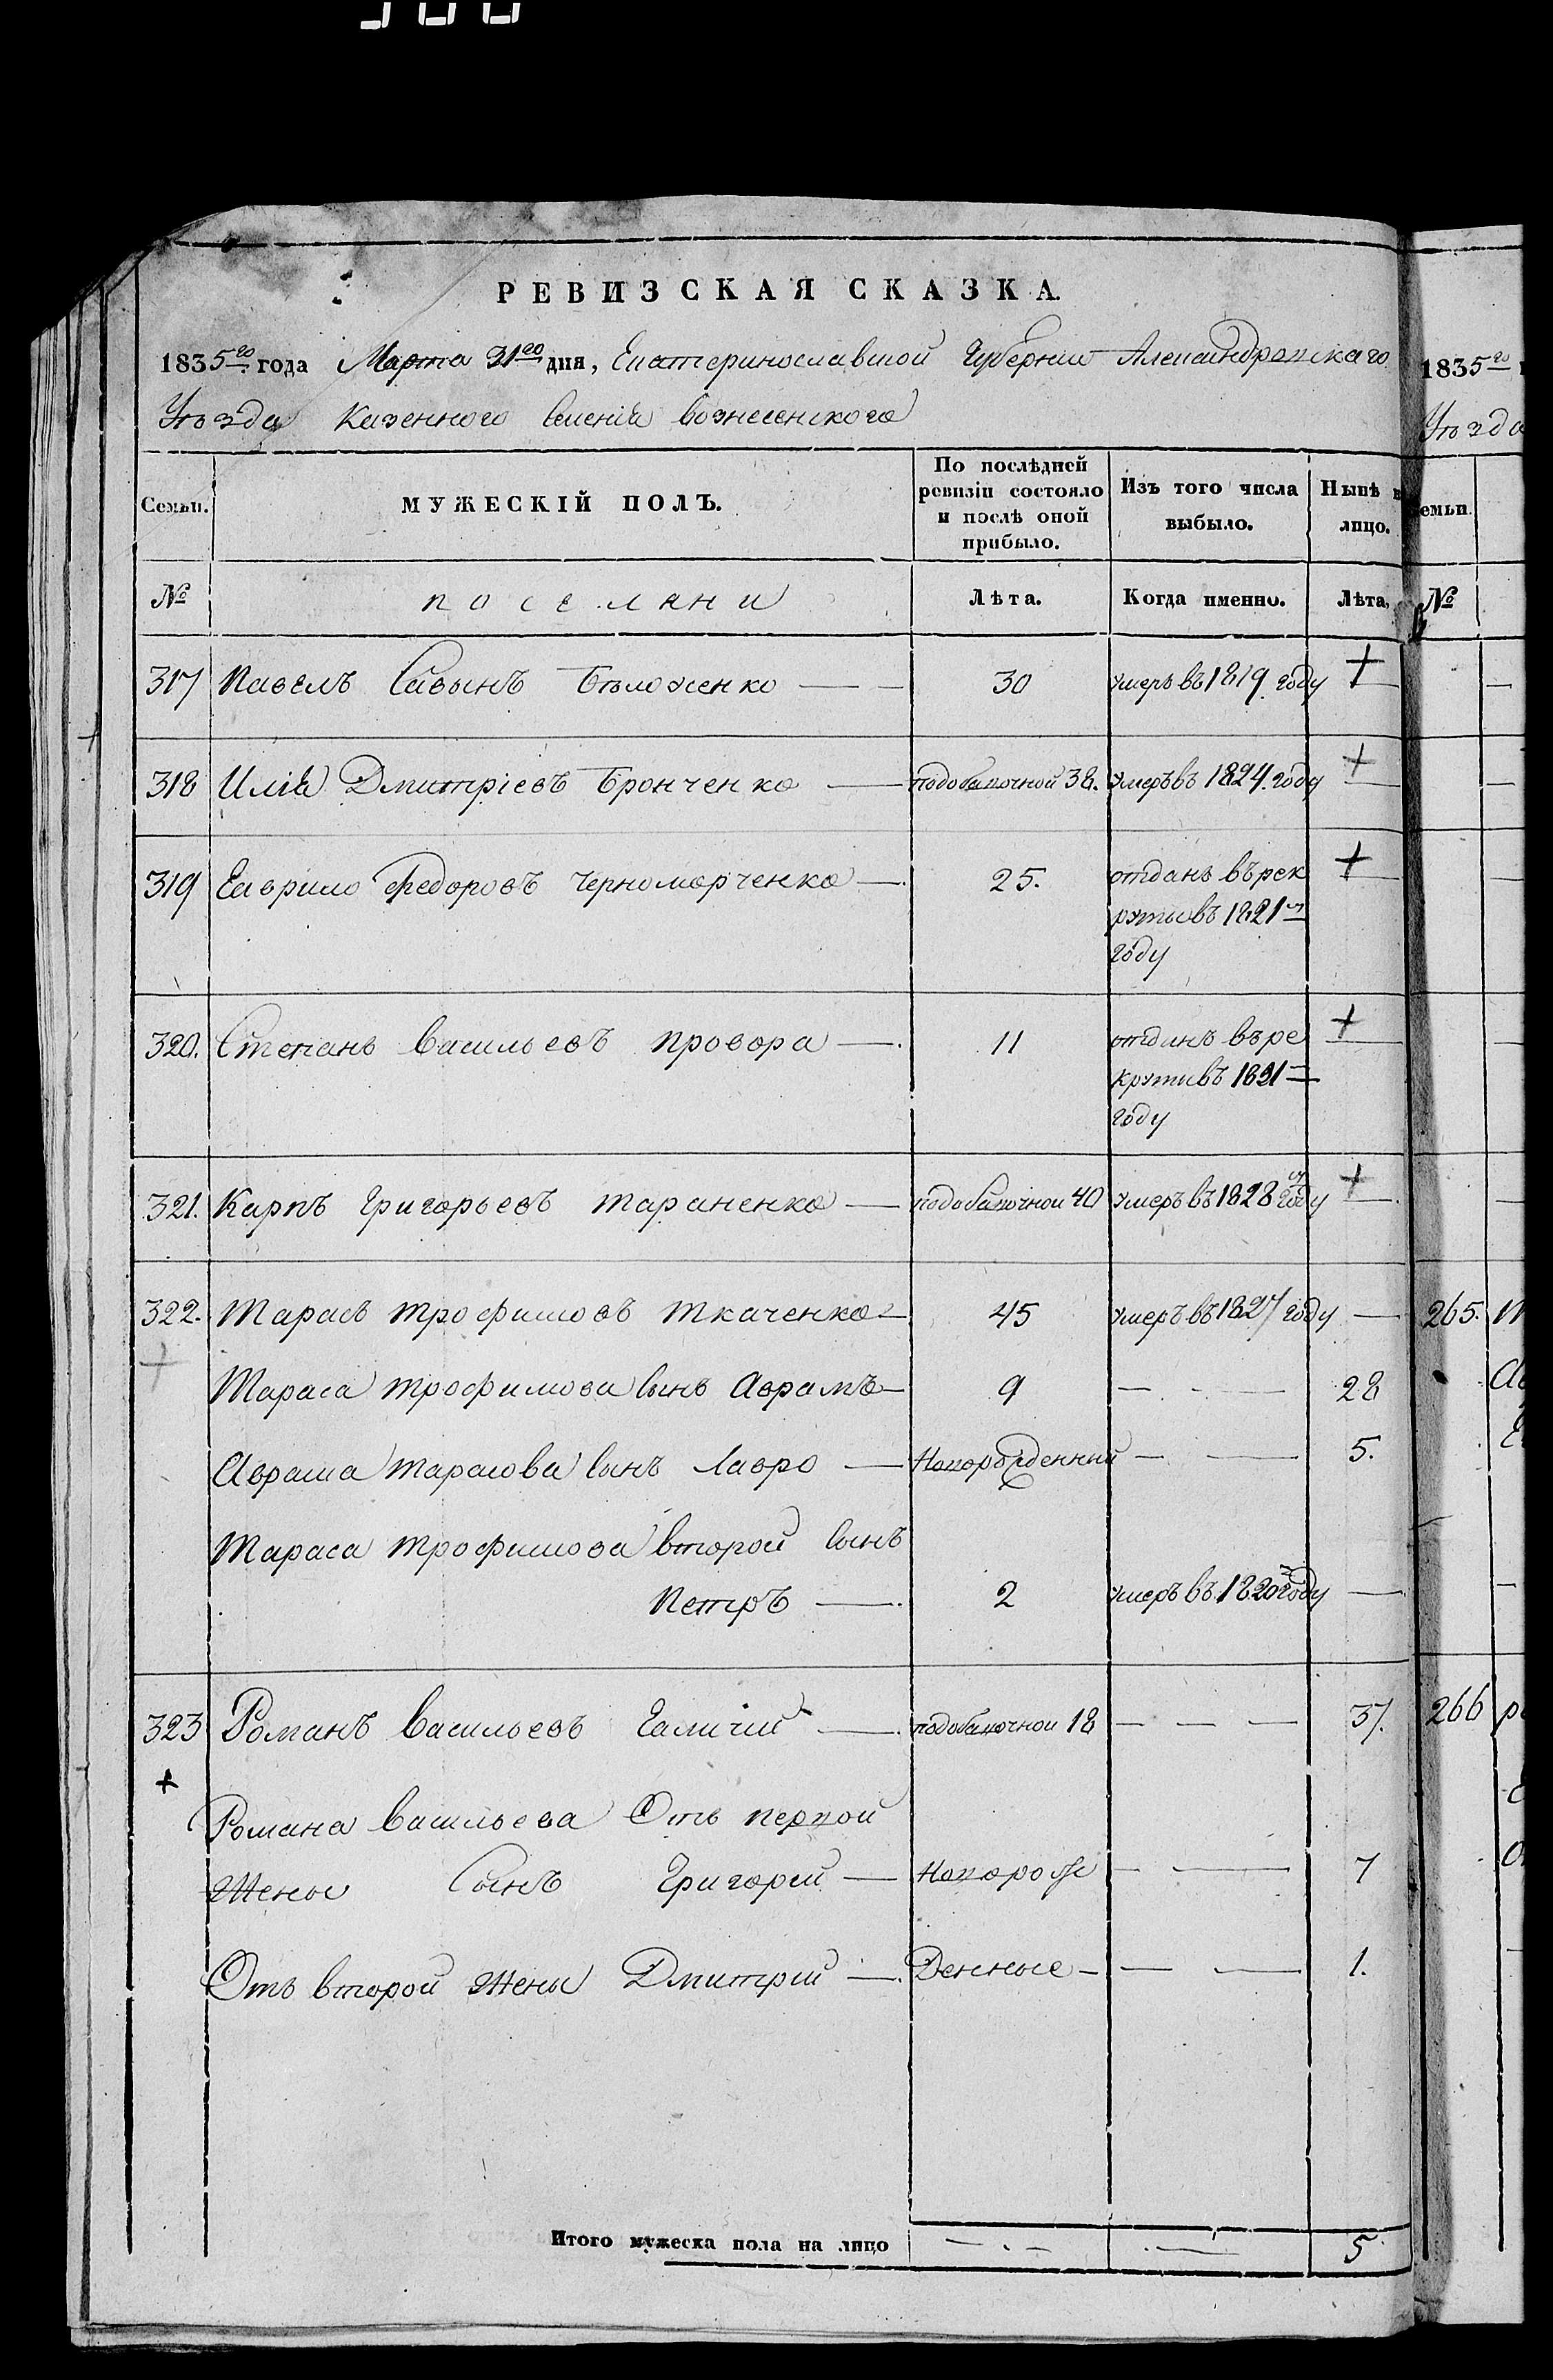 РЕВИЗСКАЯ СКАЗКА.
1835го года Марта 31го дня, Екатеринославской Губернии Александровскаго
Уѣзда Казенного Селенія Вознесенского
Семьи. МУЖЕСКІЙ ПОЛЪ. По послѣдней ревизіи состояло и послѣ оной прибыло. Изъ того числа выбыло. Нынѣ на лицо.
№ поселяни Лѣта. Когда именно. Лѣта.
317 Павелъ Савынъ Бѣложенко — 30 умеръ въ 1819 году +
318 Илія Дмитріевъ Бронченко — подобаточной 38. умеръ въ 1824. году +
319 Гаврило Федоровъ Черноморченко — 25. отданъ въ рек +
руты въ 1821м
году
320. Степанъ Васильевъ Провора — 11 отданъ въ ре +
круты въ 1831
году
321. Карпъ Григорьевъ Тараненко — 40 умеръ въ 1828м году +
322. Тарасъ Трофимовъ Ткаченко — 45 умеръ въ 1827 году —
+
Тараса Трофимова сынъ Аврамъ — 9 — — 28
Аврама Тарасова сынъ Лавро — Новорожденный — — 5.
Тараса Трофимова второй сынъ
Петръ — 2 умеръ въ 1820м году —
323 Романъ Васильевъ Галичій — 18 — — — 37.
+
Романа Васильева Отъ первой
Жены Сынъ Григорій — Новорож — — 7
Отъ второй Жены Дмитрій — Денные — — — 1.
Итого мужеска пола на лицо — — — 5
1835го
Уѣзда
Семьи.
№
265.
266